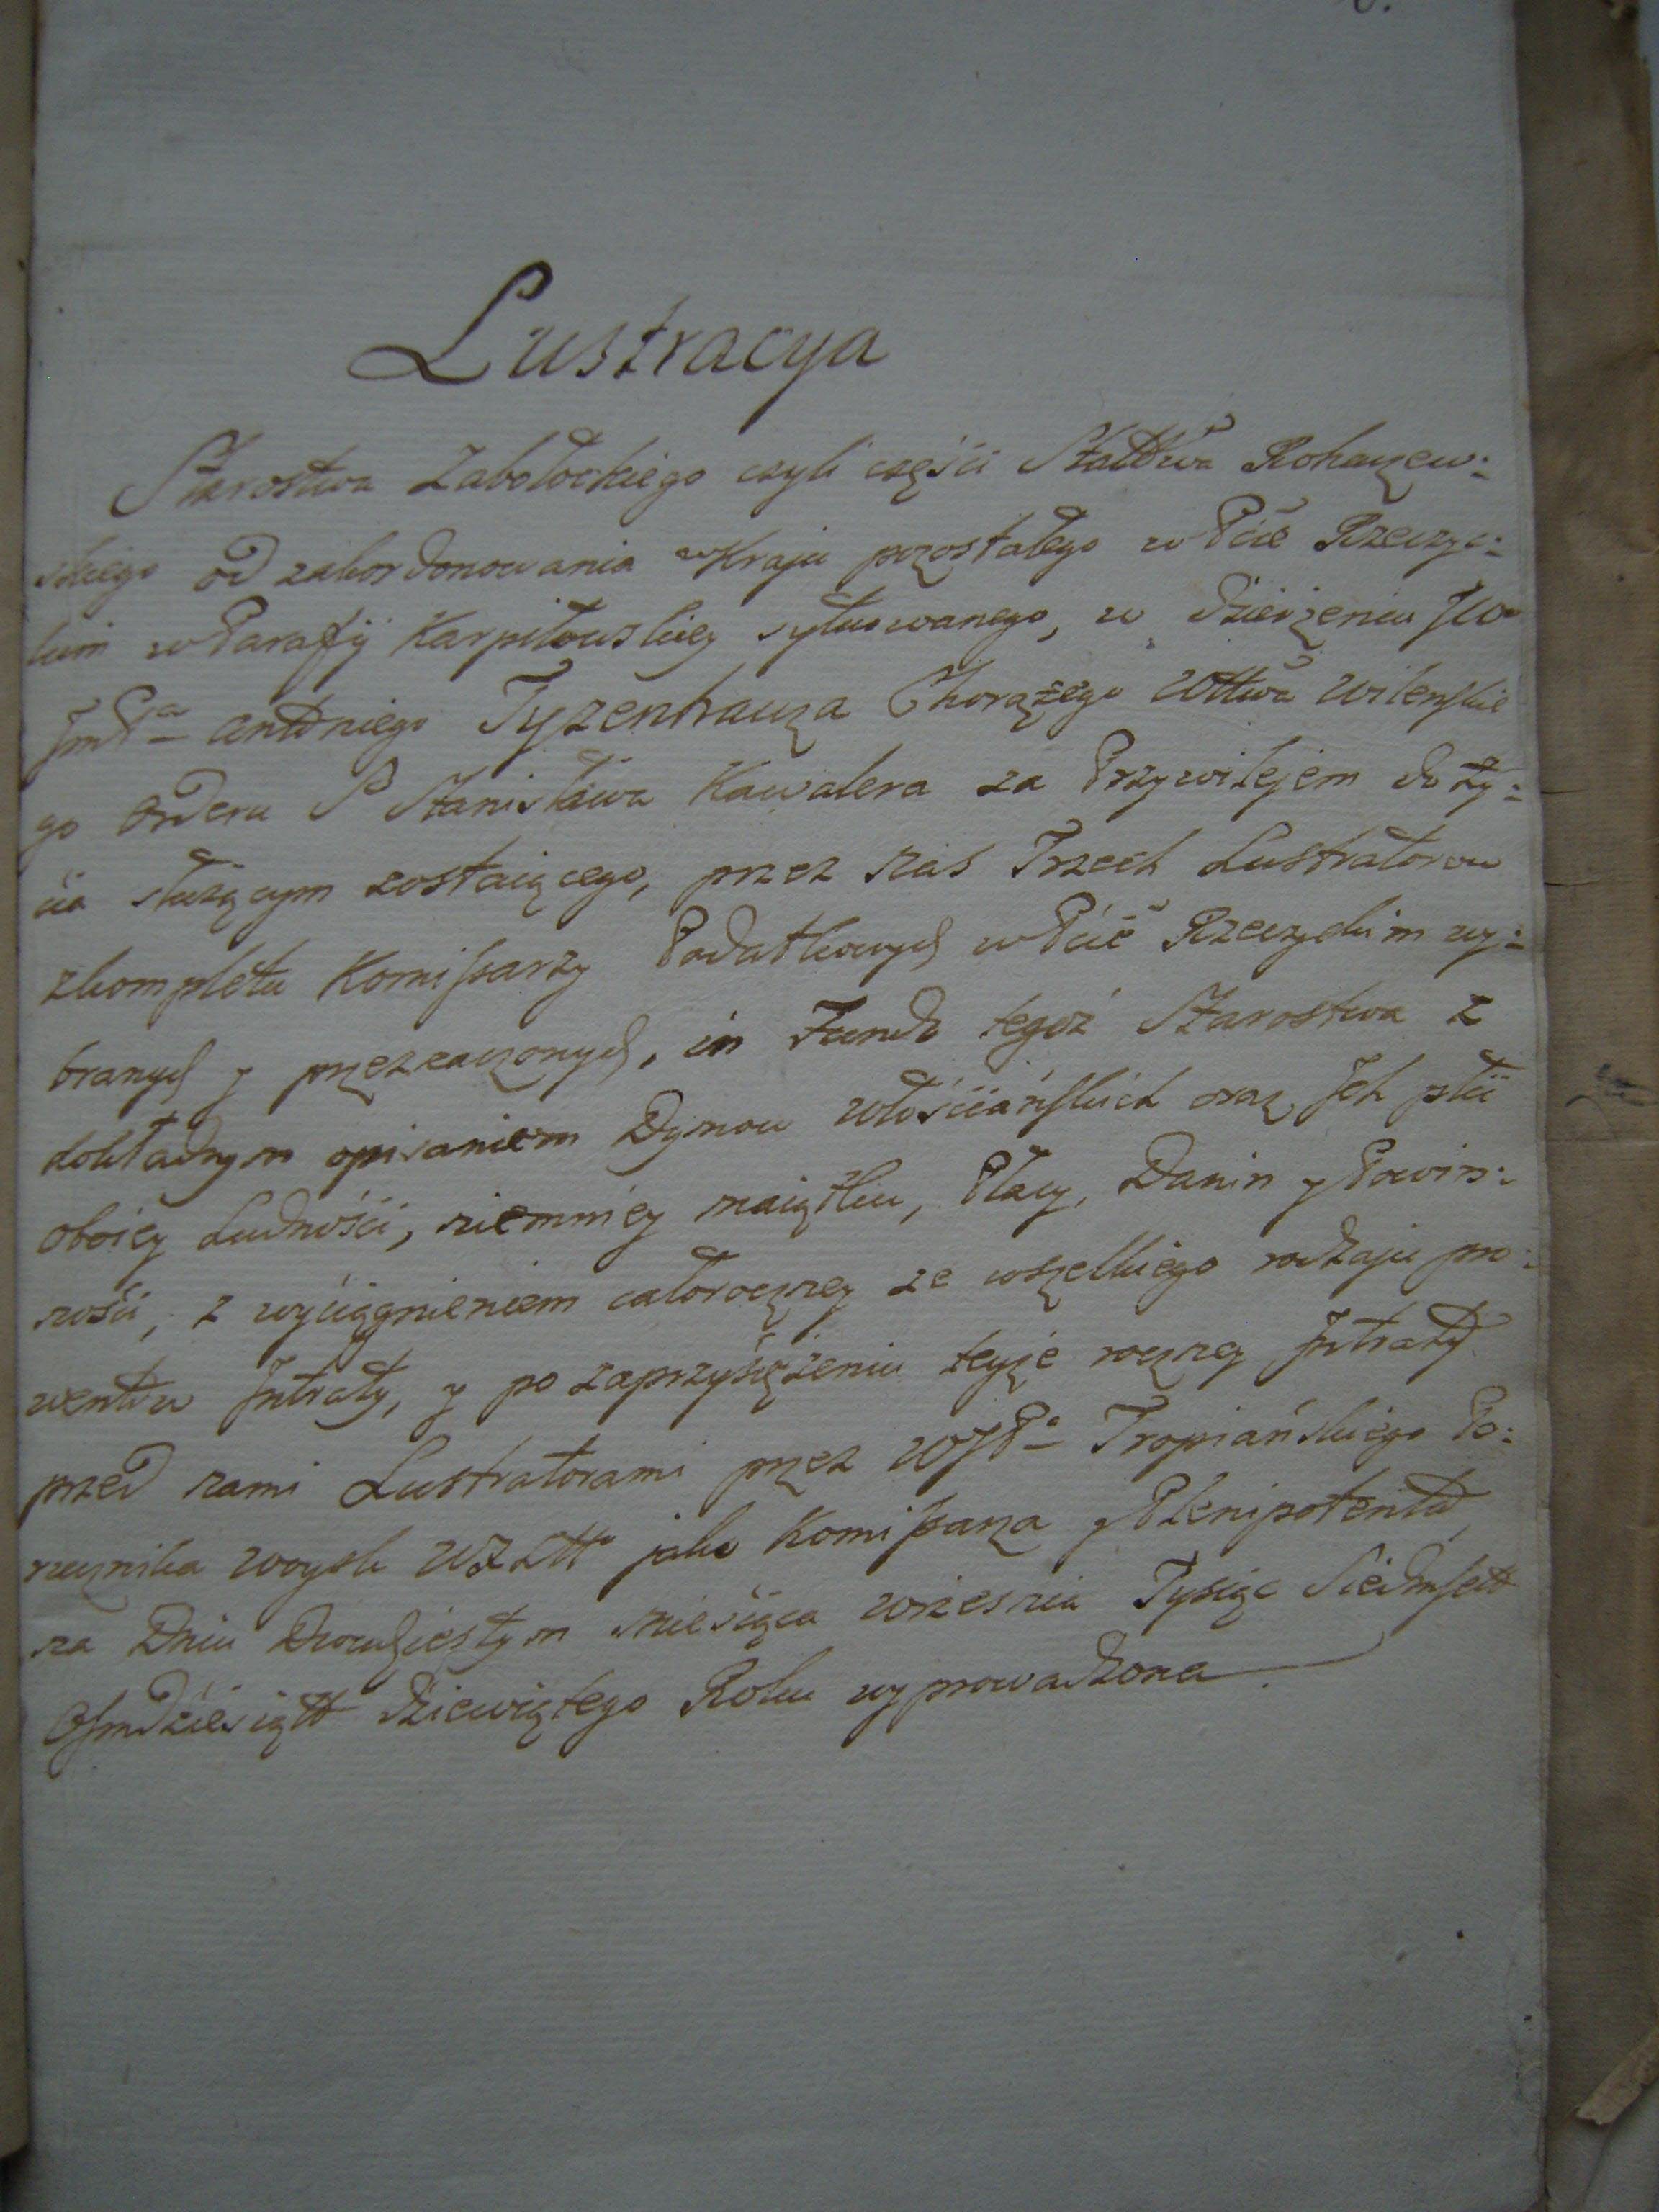 Lustracya
Starostwa Zabołockiego czyli części Stattwa Rohaczew:
skiego od zakordonowania w Kraju pozostałego w Pćie Rzeczyc:
kim w Parafij Karpiłowskiey sytuowanego, w dzierżeniu JW
Jm Pa Antoniego Tyzenhauza Chorążego Wttwa Wileńskie
go Orderu S Stanisława Kawalera za Przywilejem doży:
cia służącym zostaiącego, przez nas Trzech Lustratorow
z kompletu Komissarzy Podatkowych w Pćie Rzeczyckim wy:
branych y przeznaczonych, in Fundo tegoż Starostwa z
dokładnym opisaniem Dymow włościańskich oraz Jch płci
oboiey Ludności, niemniey maiątku, Płacy, Danin y Powin:
ności, z wyciągnieniem całoroczney ze wszelkiego rodzaju pro:
wentow Jntraty, y po zaprzysiężeniu teyże roczney Jntraty
przed nami Lustratorami przez WJPa Tropiańskiego Po:
rucznika woysk WXLtt jako Komissarza y Plenipotenta,
na Dniu Dwudziestym miesiąca Wrzesnia Tysiąc Siedmsett
Osmdziesiątt dziewiątego Roku wyprowadzona.